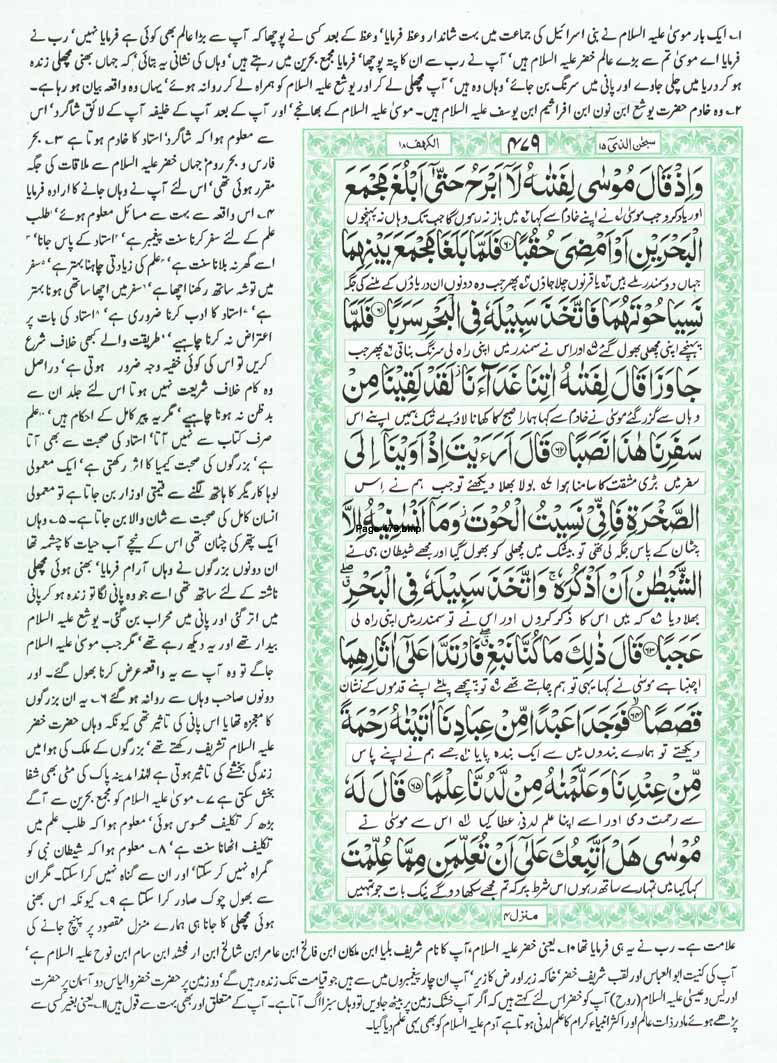 ۱۔ ایک بار موسیٰ علیہ السلام نے بنی اسرائیل کی جماعت میں بہت شاندار وعظ فرمایا‘ وعظ کے بعد کسی نے پوچھا کہ آپ سے بڑا عالم بھی کوئی ہے فرمایا نہیں‘ رب نے
فرمایا اے موسیٰ تم سے بڑے عالم خضر علیہ السلام ہیں‘ آپ نے رب سے ان کا پتہ پوچھا‘ فرمایا مجمع بحرین میں رہتے ہیں‘ وہاں کی نشانی یہ بتائی‘ کہ جہاں بھنی مچھلی زندہ
ہو کر دریا میں چلی جاوے اور پانی میں سرنگ بن جائے‘ وہاں وہ ہیں‘ آپ مچھلی لے کر اور یوشع علیہ السلام کو ہمراہ لے کر روانہ ہوئے‘ یہاں وہ واقعہ بیان ہو رہا ہے۔
۲۔ وہ خادم حضرت یوشع ابن نون ابن افراثیم ابن یوسف علیہ السلام ہیں۔ موسیٰ علیہ السلام کے بھانجے‘ اور آپ کے بعد آپ کے خلیفہ آپ کے لائق شاگرد‘ اس
سے معلوم ہوا کہ شاگرد‘ استاد کا خادم ہوتا ہے ۳۔ بحر
فارس و بحر روم‘ جہاں خضر علیہ السلام سے ملاقات کی جگہ
مقرر ہوئی تھی‘ اس لئے آپ نے وہاں جانے کا ارادہ فرمایا
۴۔ اس واقعہ سے بہت سے مسائل معلوم ہوئے‘ طلب
علم کے لئے سفر کرنا سنت پیغمبر ہے‘ استاد کے پاس جانا‘
اسے گھر نہ بلانا سنت ہے‘ علم کی زیادتی چاہنا بہتر ہے‘ سفر
میں توشہ ساتھ رکھنا اچھا ہے‘ سفر میں اچھا ساتھی ہونا بہتر
ہے‘ استاد کا ادب کرنا ضروری ہے‘ استاد کی بات پر
اعتراض نہ کرنا چاہیے‘ طریقت والے کبھی خلاف شرع
کریں تو اس کی کوئی خفیہ وجہ ضرور ہوتی ہے‘ دراصل
وہ کام خلاف شریعت نہیں ہوتا اس لئے جلد ان سے
بدظن نہ ہونا چاہیے‘ مگر یہ پیر کامل کے احکام ہیں‘ علم
صرف کتاب سے نہیں آتا‘ استاد کی صحبت سے بھی آتا
ہے‘ بزرگوں کی صحبت کیمیا کا اثر رکھتی ہے‘ ایک معمولی
لوہا کاریگر کا ہاتھ لگنے سے قیمتی اوزار بن جاتا ہے تو معمولی
انسان کامل کی صحبت سے شان والا بن جاتا ہے۔ ۵۔ وہاں
ایک پتھر کی چٹان تھی اس کے نیچے آب حیات کا چشمہ تھا
ان دونوں بزرگوں نے وہاں آرام فرمایا‘ بھنی ہوئی مچھلی
ناشتہ کے لئے ساتھ تھی اسے جو وہ پانی لگا تو زندہ ہو کر پانی
میں اتر گئی اور پانی میں محراب بن گئی۔ یوشع علیہ السلام
بیدار تھے اور یہ دیکھ رہے تھے‘ مگر جب موسیٰ علیہ السلام
جاگے تو وہ آپ سے یہ واقعہ عرض کرنا بھول گئے۔ اور
دونوں صاحب وہاں سے روانہ ہو گئے ۶۔ یہ ان بزرگوں
کا معجزہ تھا یا اس پانی کی تاثیر تھی کیونکہ وہاں حضرت خضر
علیہ السلام تشریف رکھتے تھے‘ بزرگوں کے ملک کی ہوا میں
زندگی بخشنے کی تاثیر ہوتی ہے لہٰذا مدینہ پاک کی مٹی بھی شفا
بخش سکتی ہے ۷۔ موسیٰ علیہ السلام کو مجمع بحرین سے آگے
بڑھ کر تکلیف محسوس ہوئی‘ معلوم ہوا کہ طلب علم میں
تکلیف اٹھانا سنت ہے‘ ۸۔ معلوم ہوا کہ شیطان نبی کو
گمراہ نہیں کر سکتا‘ اور ان سے گناہ نہیں کرا سکتا۔ مگر ان
سے بھول چوک صادر کرا سکتا ہے ۹۔ کیونکہ اس بھنی
ہوئی مچھلی کا جانا ہی ہمارے منزل مقصود پر پہنچ جانے کی
سبحٰن الذی ۱۵
۴۷۹
الکہف ۱۸
وَاِذْ قَالَ مُوْسٰى لِفَتٰىهُ لَاۤ اَبْرَحُ حَتّٰۤى اَبْلُغَ مَجْمَعَ
اور یاد کرو جب موسیٰ نے اپنے خادم سے کہا میں باز نہ رہوں گا جب تک وہاں نہ پہنچوں
الْبَحْرَيْنِ اَوْ اَمْضِىَ حُقُبًا ﴿۶۰﴾ فَلَمَّا بَلَغَا مَجْمَعَ بَيْنِهِمَا
جہاں دو سمندر ملے ہیں یا قرنوں چلا جاؤں پھر جب وہ دونوں ان دریاؤں کے ملنے کی جگہ
نَسِيَا حُوْتَهُمَا فَاتَّخَذَ سَبِيْلَهٗ فِى الْبَحْرِ سَرَبًا ﴿۶۱﴾ فَلَمَّا
پہنچے اپنی مچھلی بھول گئے ۵ اور اس نے سمندر میں اپنی راہ لی سرنگ بناتی پھر جب
جَاوَزَا قَالَ لِفَتٰىهُ اٰتِنَا غَدَآءَنَا ۫ لَقَدْ لَقِيْنَا مِنْ
وہاں سے گزر گئے موسیٰ نے خادم سے کہا ہمارا صبح کا کھانا لاؤ بے شک ہمیں اپنے اس
سَفَرِنَا هٰذَا نَصَبًا ﴿۶۲﴾ قَالَ اَرَءَيْتَ اِذْ اَوَيْنَاۤ اِلَى
سفر میں بڑی مشقت کا سامنا ہوا ۷ بولا بھلا دیکھئے تو جب ہم نے اس
الصَّخْرَةِ فَاِنِّىْ نَسِيْتُ الْحُوْتَ ۫ وَمَاۤ اَنْسٰنِيْهُ اِلَّا
Page 479.bmp
چٹان کے پاس جگہ لی تھی تو بیشک میں مچھلی کو بھول گیا اور مجھے شیطان ہی نے
الشَّيْطٰنُ اَنْ اَذْكُرَهٗ ۚ وَاتَّخَذَ سَبِيْلَهٗ فِى الْبَحْرِ ۖ
بھلا دیا ۸ کہ میں اس کا ذکر کروں اور اس نے تو سمندر میں اپنی راہ لی
عَجَبًا ﴿۶۳﴾ قَالَ ذٰلِكَ مَا كُنَّا نَبْغِ ۖ فَارْتَدَّا عَلٰۤى اٰثَارِهِمَا
اچنبا ہے موسیٰ نے کہا یہی تو ہم چاہتے تھے ۹ تو پیچھے پلٹے اپنے قدموں کے نشان
قَصَصًا ﴿۶۴﴾ فَوَجَدَا عَبْدًا مِّنْ عِبَادِنَاۤ اٰتَيْنٰهُ رَحْمَةً
دیکھتے تو ہمارے بندوں میں سے ایک بندہ پایا ۱۰ جسے ہم نے اپنے پاس
مِّنْ عِنْدِنَا وَعَلَّمْنٰهُ مِنْ لَّدُنَّا عِلْمًا ﴿۶۵﴾ قَالَ لَهٗ
سے رحمت دی اور اسے اپنا علم لدنی عطا کیا ۱۱ اس سے موسیٰ نے
مُوْسٰى هَلْ اَتَّبِعُكَ عَلٰۤى اَنْ تُعَلِّمَنِ مِمَّا عُلِّمْتَ
کہا کیا میں تمہارے ساتھ رہوں اس شرط پر کہ تم مجھے سکھا دو گے نیک بات جو تمہیں
منزل ۴
علامت ہے۔ رب نے یہ ہی فرمایا تھا ۱۰۔ یعنی خضر علیہ السلام‘ آپ کا نام شریف بلیا ابن ملکان ابن فالغ ابن عامر ابن شالخ ابن ار فخشد ابن سام ابن نوح علیہ السلام ہے‘
آپ کی کنیت ابو العباس اور لقب شریف خضر‘ خاکہ زبر اور ض کا زیر‘ آپ ان چار پیغمبروں میں سے ہیں جو قیامت تک زندہ رہیں گے‘ دو زمین پر حضرت خضر والیاس دو آسمان پر حضرت
ادریس و عیسیٰ علیہ السلام (روح) آپ کو خضر اس لئے کہتے ہیں کہ اگر آپ خشک زمین پر بیٹھ جاویں تو وہاں سبزا اگ آتا ہے۔ آپ کے متعلق اور بھی بہت سے قول ہیں ۱۱۔ یعنی بغیر کسی سے
پڑھے ہوئے مادر ذات عالم اور اکثر انبیاء کرام کا علم لدنی ہوتا ہے آدم علیہ السلام کو بھی یہی علم دیا گیا۔